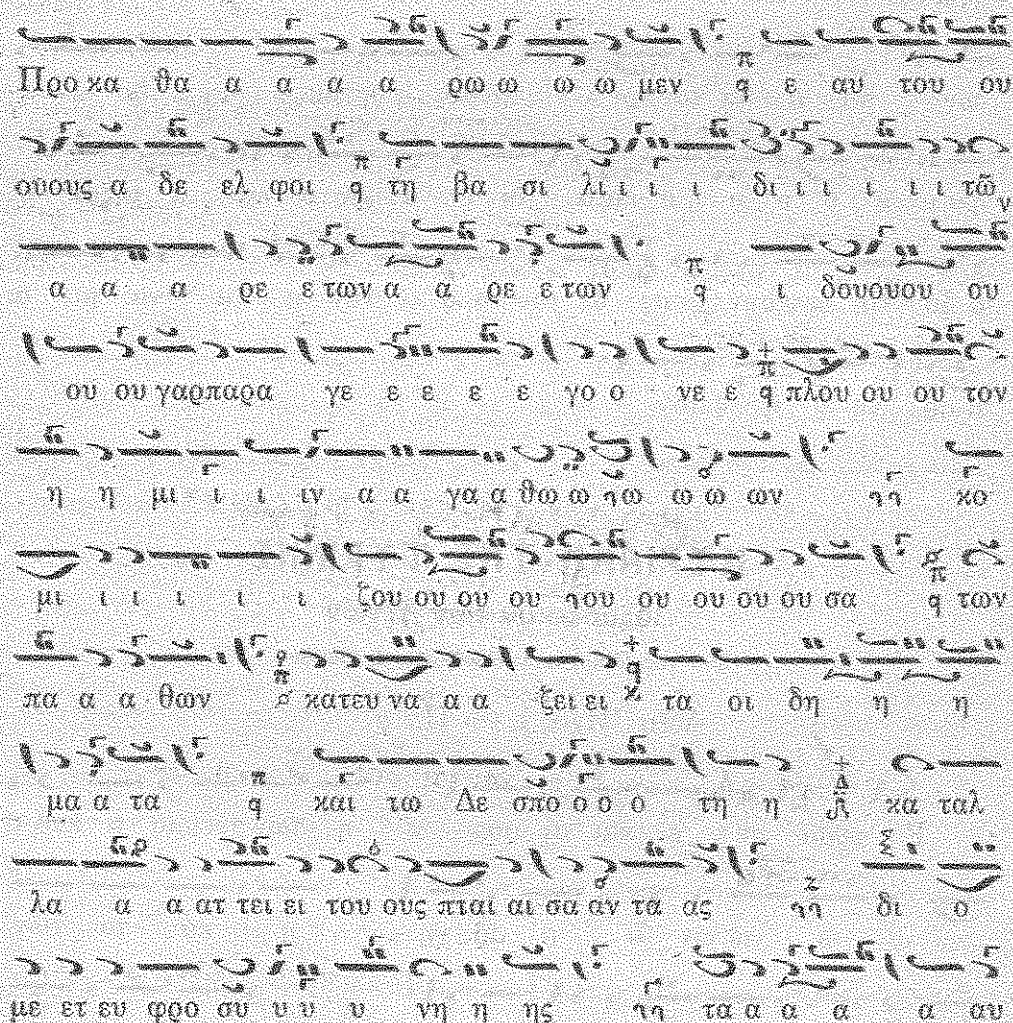 Προ κα θα α α α α ρω ω ω ω μεν π q ε αυ του ου
ουους α δε ελ φοι π q τη βα σι λι ι ι ι δι ι ι ι ι ι τῶν
α α α ρε ε των α α ρε ε των π q ι δουουου ου
ου ου γαρ παρα γε ε ε ε ε γο ο νε ε π q πλου ου ου τον
η η μι ι ι ιν α α γα α θω ω ω ω ω ων κο
μι ι ι ι ι ι ζου ου ου ου ου ου ου ου ου σα π q των
πα α α θων π κατευ να α α ζει ει q τα οι δη η η
μα α τα π q και τω Δε σπο ο ο ο τη η Δ κα ταλ
λα α α ατ τει ει του ους πται αι σα αν τα ας Ζ δι ο
με ετ ευ φρο συ υ υ υ νη η ης τα α α α α αυ